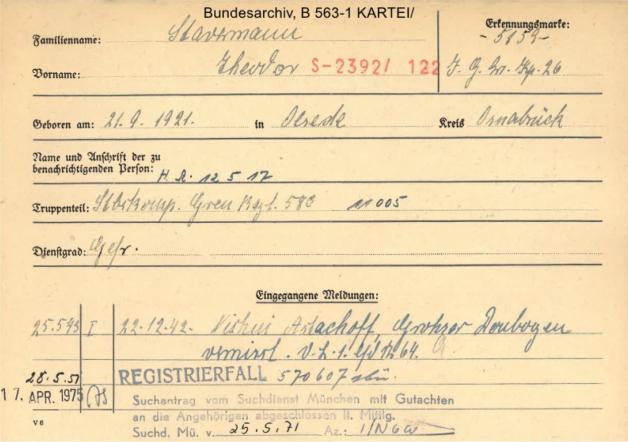 Bundesarchiv, B 563-1 KARTEI/
Erkennungsmarke:
Familienname: Stavermann -5153-
Vorname: Theodor S-2392/ 122 J. G. Kp. 26
Geboren am: 21.9.1921. in Kreis Osnabrück
Name und Anschrift der zu
benachrichtigenden Person: 12 5 17
Truppenteil: Stbskomp. Gren Regt. 11005
Dienstgrad: Gefr.
Eingegangene Meldungen:
25.5.43 I 22.12.42. Nishni Astachoff, Grohzer Donbogen
vermisst. V.L.1. lfd Nr 64.
28.5.51 REGISTRIERFALL 570607
17. APR. 1975 Suchantrag vom Suchdienst München mit Gutachten
an die Angehörigen abgeschlossen lt. Mittlg.
Suchd. Mü. v. 25.5.71 Az.:
V6